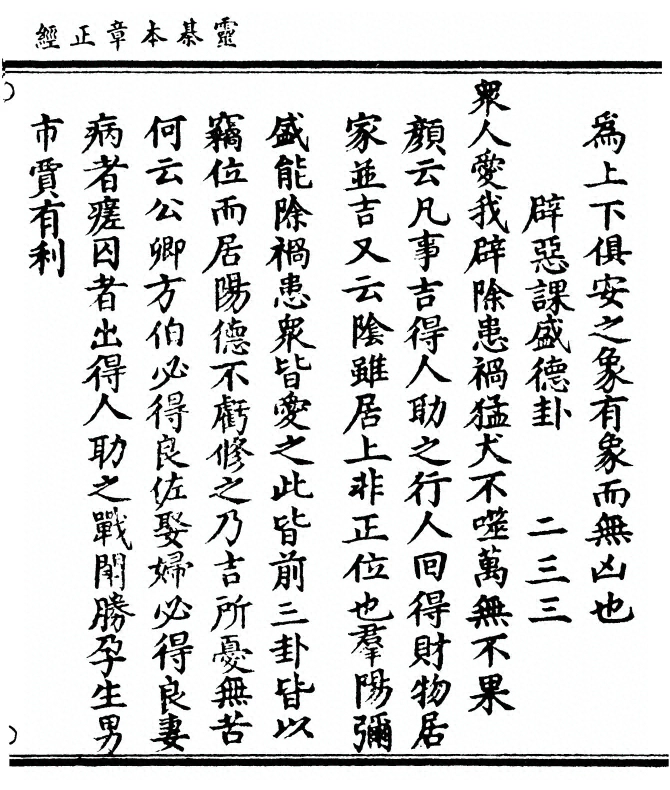 靈棊本章正經
為上下俱安之象有象而無凶也
辟惡課盛德卦　二三三
衆人愛我辟除患禍猛犬不噬萬無不果
顏云凡事吉得人助之行人回得財物居
家並吉又云陰雖居上非正位也羣陽彌
盛能除禍患衆皆愛之此皆前三卦皆以
竊位而居陽德不虧修之乃吉所憂無苦
何云公卿方伯必得良佐娶婦必得良妻
病者瘥囚者出得人助之戰鬭勝孕生男
市賈有利